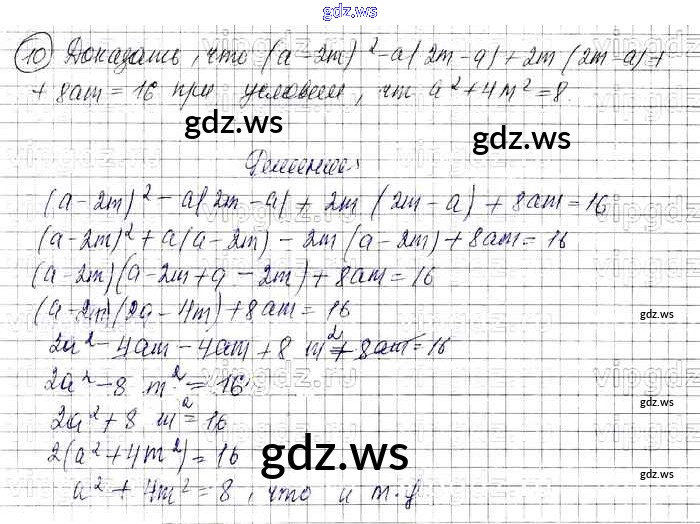 gdz.ws
10 Доказать, что (a-2m)²-a(2m-a)+2m(2m-a)+
+8am=16 при условии, чт a²+4m²=8.
gdz.ws
gdz.ws
Решение:
(a-2m)²-a(2m-a)+2m(2m-a)+8am=16
(a-2m)²+a(a-2m)-2m(a-2m)+8am=16
(a-2m)(a-2m+a-2m)+8am=16
(a-2m)(2a-4m)+8am=16
gdz.ws
2a²-4am-4am+8m²+8am=16
2a²-8m²=16
gdz.ws
2a²+8m²=16
2(a²+4m²)=16
gdz.ws
gdz.ws
a²+4m²=8, что и т.д